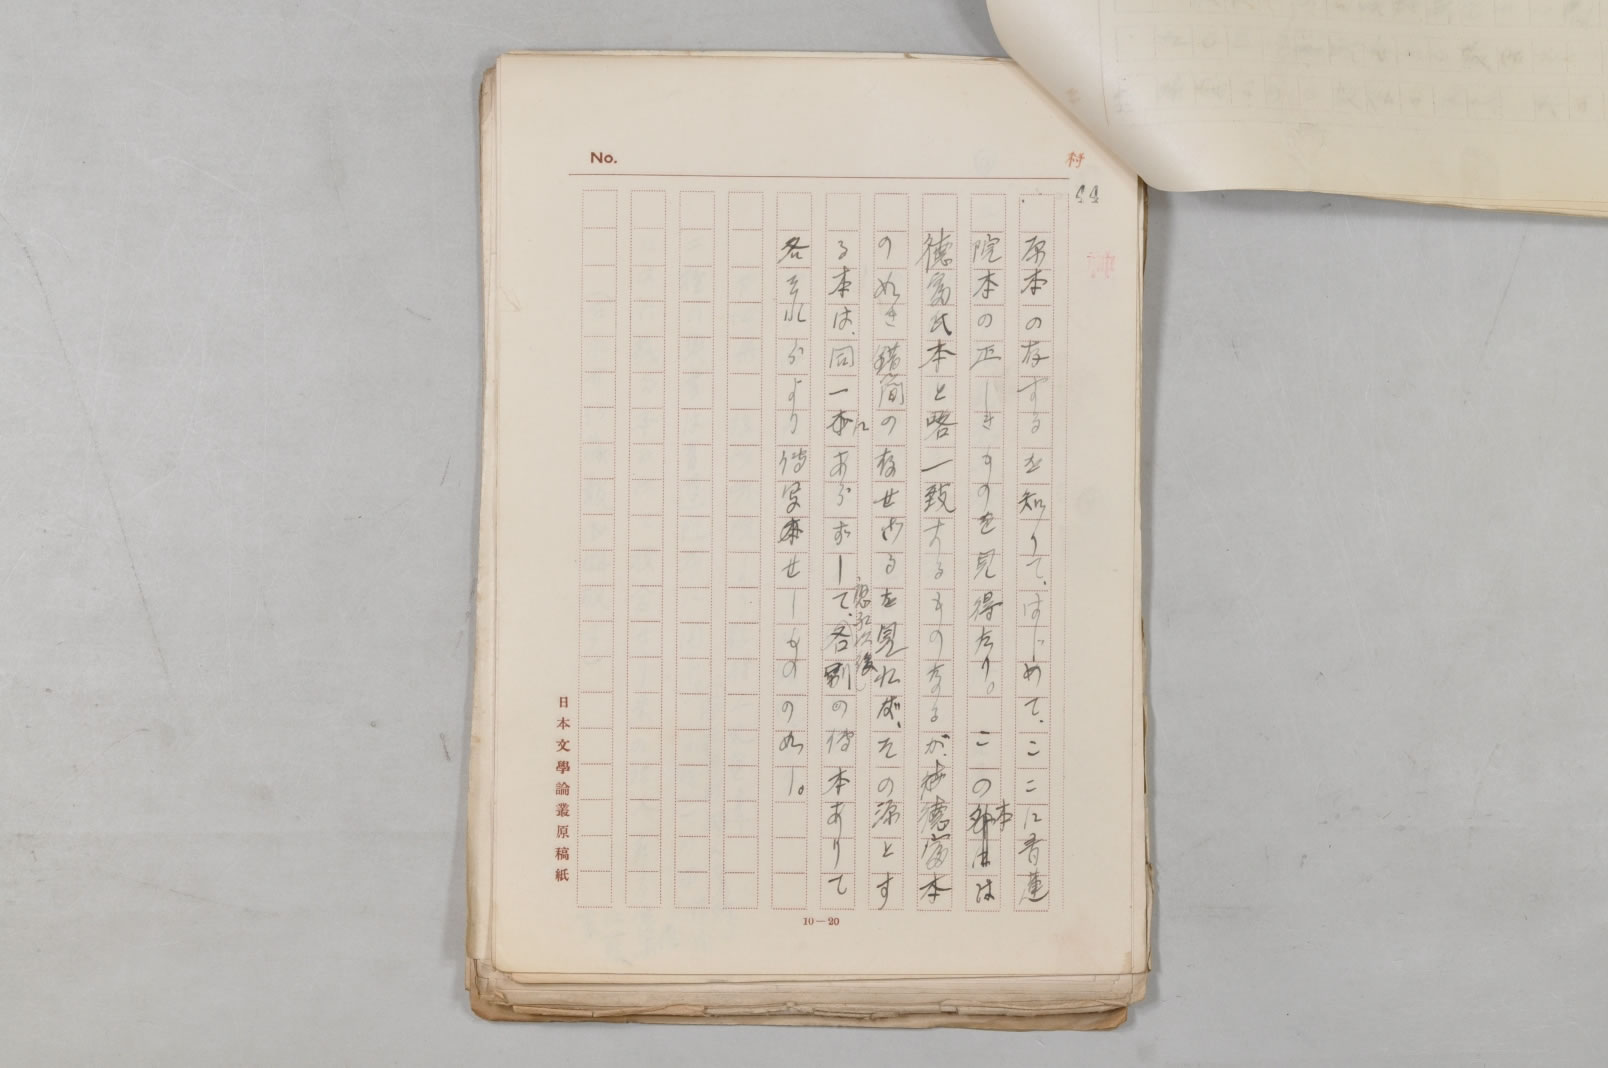 No.
村
44
原本の存するを知りて、はじめて、ここに青蓮
院本の正しきものを見得たり。この本は
徳富氏本と略一致するものなるが、徳富本
の如き錯簡の存せざるを見れば、その源とす
る本は、同一本にあらずして、應永以後各別の傳本ありて
各それらより傳写せしものの如し。
日本文學論叢原稿紙
10—20